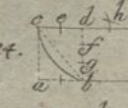 c e d h
4. f
g
a b